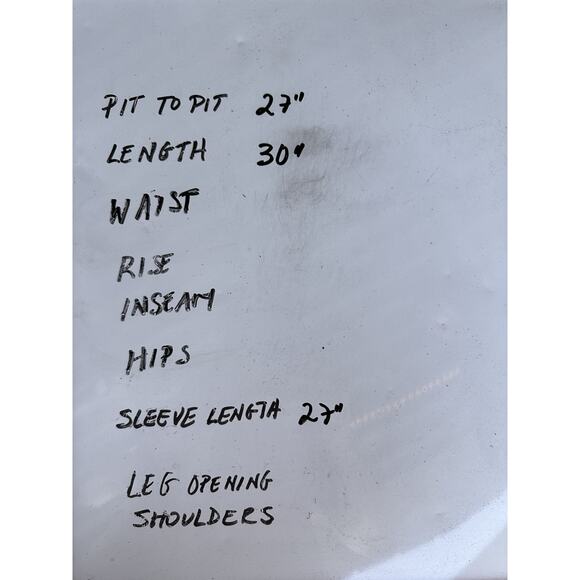 PIT TO PIT 27"
LENGTH 30"
WAIST
RISE
INSEAM
HIPS
SLEEVE LENGTH 27"
LEG OPENING
SHOULDERS